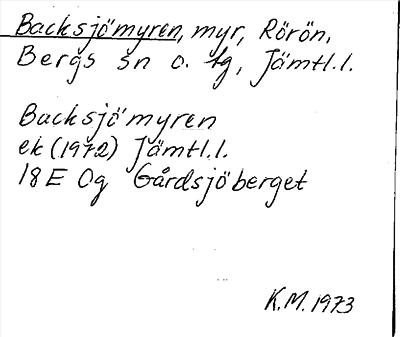 Backsjömyren, myr, Rörön,
Bergs sn o. tg, Jämtl.l.
Backsjömyren
ek (1972) Jämtl.l.
18E Og Gårdsjöberget
K.M. 1973